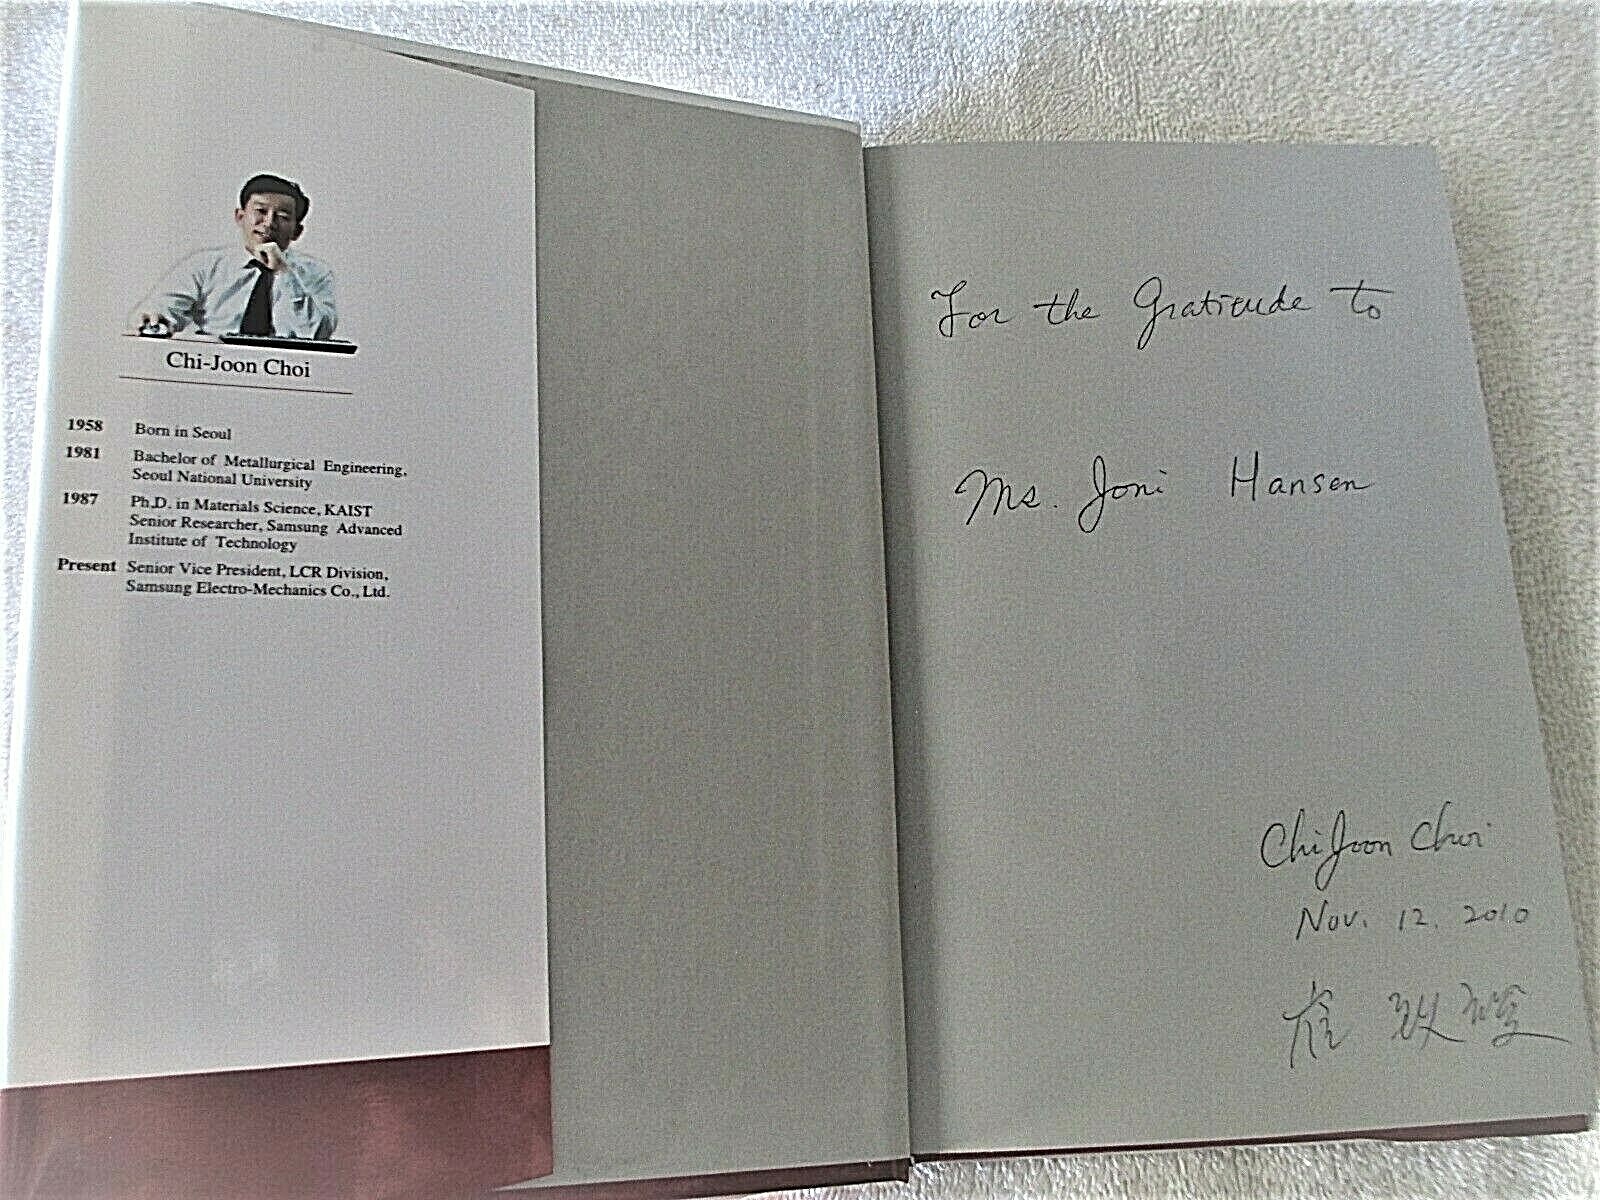 Chi-Joon Choi
1958 Born in Seoul
1981 Bachelor of Metallurgical Engineering,
Seoul National University
1987 Ph.D. in Materials Science, KAIST
Senior Researcher, Samsung Advanced
Institute of Technology
Present Senior Vice President, LCR Division,
Samsung Electro-Mechanics Co., Ltd.
For the Gratitude to
Ms. Joni Hansen
ChiJoon Choi
Nov. 12. 2010
崔 致